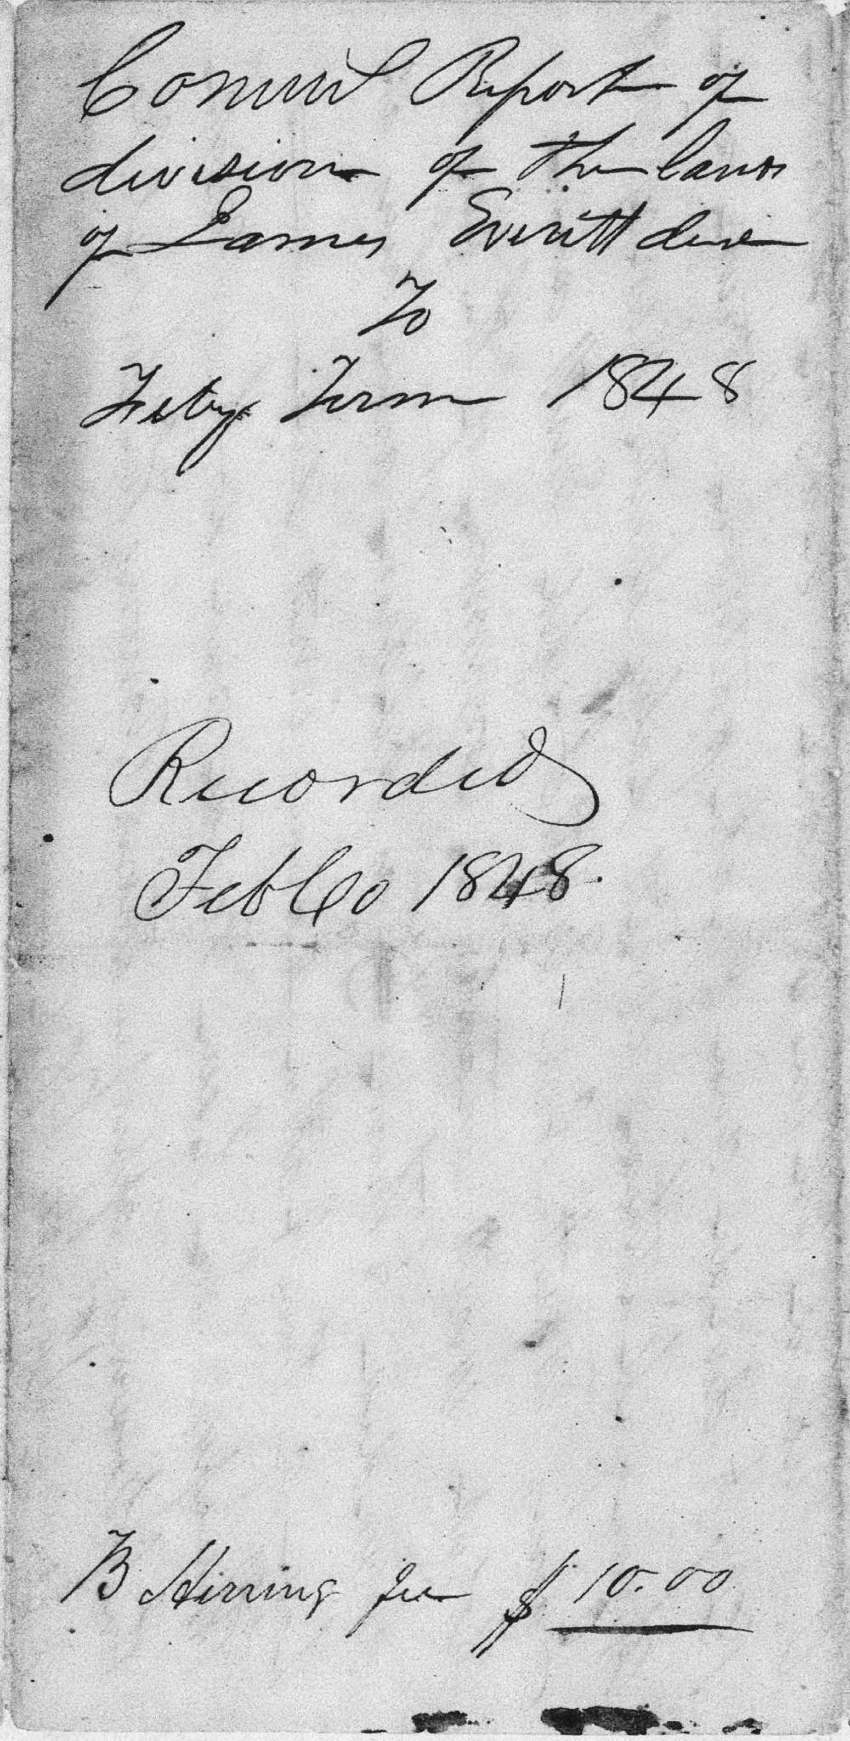 Commrs Report of
division of the lands
of James Everitt decd
To
Feby Term 1848
Recorded
Feb Co 1848.
B Herring fee $10.00